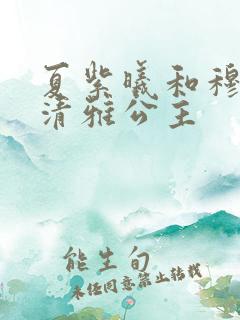 夏紫曦和穆
清雅公主
能生旬
未经同意禁止转载